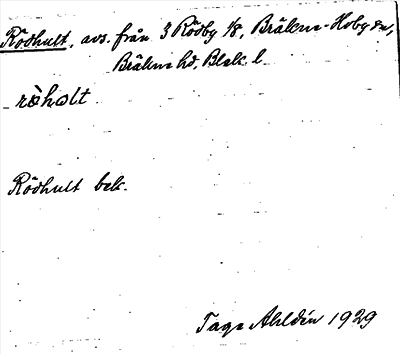 Rödhult, avs. från 3 Rödby 1/8, Bräkne-Hoby sn,
Bräkne hd, Blek. l.
rö̀hɷlt
Rödhult bek.
Tage Ahldén 1929